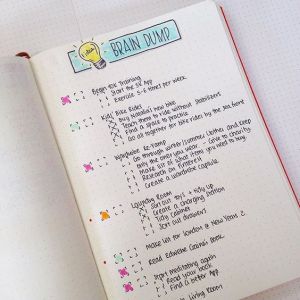 idea
BRAIN DUMP
Begin 5K Training
Start the 5K App
Exercise 5-6 times per week
Kids' Bike Rides
Buy Natalia's new bike
Teach them to ride without stabilisers
Find a space to practice
Go all together for bike rides by the sea front
Wardrobe Re-Vamp
Go through winter/summer clothes and keep
only the ones you wear - Give to charity
Make list of what items you need to buy
Research on Pinterest
Create a wardrobe capsule
Laundry Room
Sort out toys + tidy up
Create a charging station
Tidy cabinet
Sort out drawers
Make list for London & New York
Read book
Start meditating again
Read your book
Find a better App
Living Room